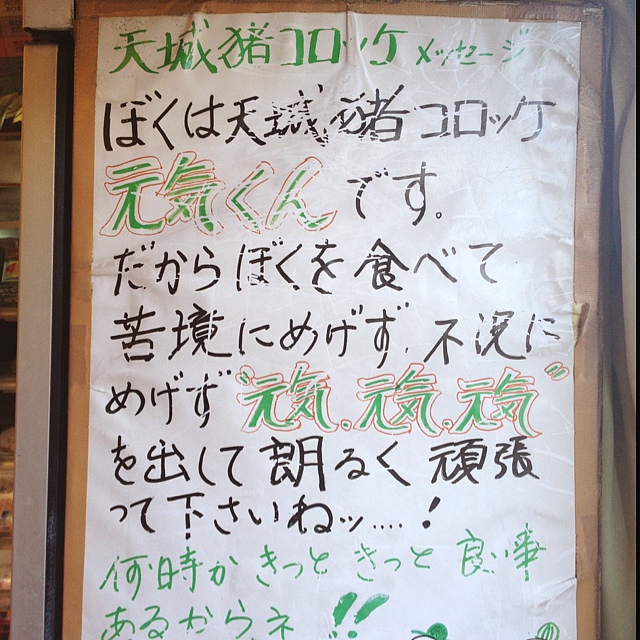 天城猪コロッケ メッセージ
ぼくは天城猪コロッケ
元気くん です。
だからぼくを食べて
苦境にめげず、不況に
めげず“元気、元気、元気”
を出して朗るく頑張
って下さいねッ....!
何時かきっときっと良い事
あるからネ!!